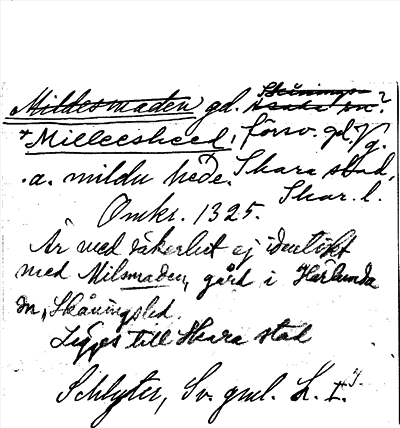 Mildesmaden gd. Skånings
Asaka sn.?
*Milleesheed, försv. gd. Vg.
.a. mildu hede. Skara stad,
Skar. l.
Omkr. 1325.
Är med säkerhet ej identiskt
med Milsmaden, gård i Härlunda
sn, Skåningshd.
Lägges till Skara stad
Schlyter, Sv. gml. L. I.